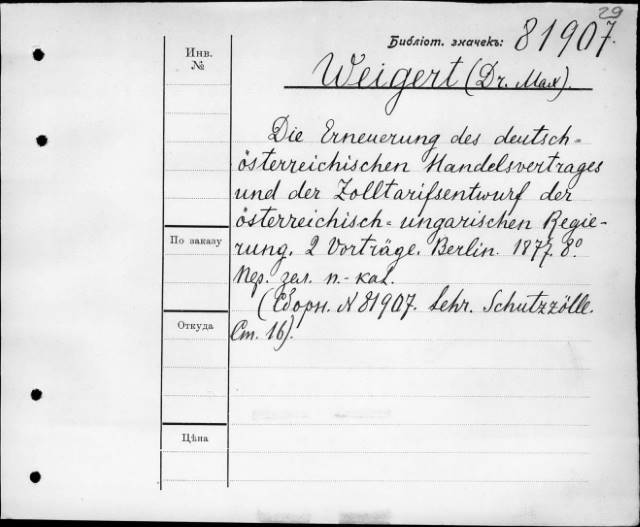 29
Библіот. значекъ: 81907.
Инв.
№
Weigert (Dr. Max).
Die Erneuerung des deutsch=
österreichischen Handelsvertrages
und der Zolltarifsentwurf der
österreichisch=ungarischen Regie-
rung. 2 Vorträge. Berlin. 1877. 8º
По заказу
Пер. зел. п.-кал.
(Сборн. N 81907. Lehr. Schutzzölle.
Откуда
Ст. 16).
Цѣна